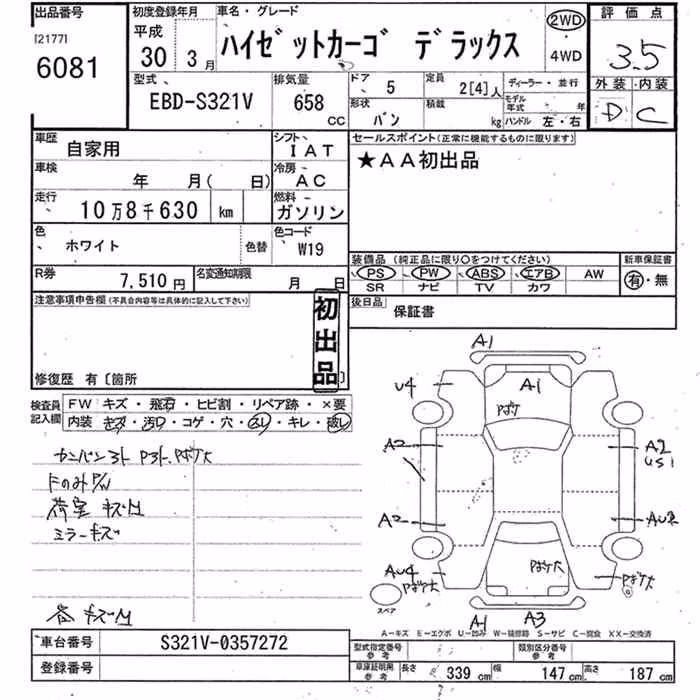 出品番号
[2177]
6081
初度登録年月
平成
30 3月
車名・グレード
ハイゼットカーゴ デラックス
2WD
4WD
評価点
3.5
型式
EBD-S321V
排気量
658 CC
ドア 5
定員 2[4]人
ディーラー・並行
形状 バン
積載 kg
モデル年式 年
ハンドル 左・右
外装 内装
D C
車歴 自家用
シフト IAT
車検 年 月( 日)
冷房 AC
走行 10万8千630 km
燃料 ガソリン
色 ホワイト
色替
色コード W19
R券 7,510円
名変通知期限 月 日
セールスポイント(正常に機能するものに限ります)
★AA初出品
装備品 (純正品に限り○をつけてください)
新車保証書
PS PW ABS エアB AW
有・無
SR ナビ TV カワ
後日品 保証書
注意事項申告欄(不具合内容等は具体的に記入して下さい)
初出品
修復歴 有〔箇所 〕
検査員記入欄
FW キズ・飛石・ヒビ割・リペア跡・×要
内装 キズ・汚レ・コゲ・穴・・キレ・
荷室 キズ凹
ミラーキズ
キズ凹
A1
U4
A1
A2
A2
US1
A2
AU2
AU4
スペア
A1
A3
A-キズ E-エクボ U-凹み W-補修跡 S-サビ C-腐食 XX-交換済
車台番号 S321V-0357272
登録番号
型式指定番号 参考
類別区分番号 参考
車庫証明用 参考
長さ 339 cm
幅 147 cm
高さ 187 cm